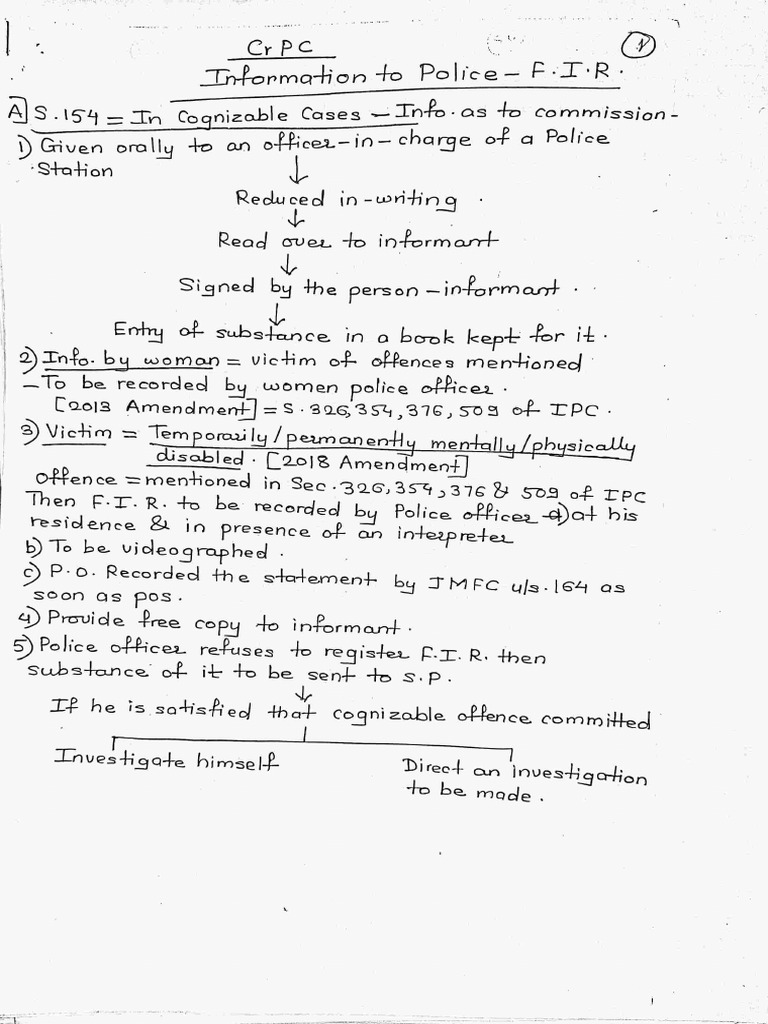 CrPC
Information to Police - F.I.R.
A] S.154 = In Cognizable Cases - Info. as to commission -
1) Given orally to an officer-in-charge of a Police
Station
↓
Reduced in-writing.
↓
Read over to informant
↓
Signed by the person - informant.
↓
Entry of substance in a book kept for it.
2) Info. by woman = victim of offences mentioned
- To be recorded by women police officer.
[2013 Amendment] = S. 326, 354, 376, 509 of IPC.
3) Victim = Temporarily/permanently mentally/physically
disabled. [2018 Amendment]
offence = mentioned in Sec. 326, 354, 376 & 509 of IPC
Then F.I.R. to be recorded by Police officer a) at his
residence & in presence of an interpreter
b) To be videographed.
c) P.O. Recorded the statement by JMFC u/s. 164 as
soon as pos.
4) Provide free copy to informant.
5) Police officer refuses to register F.I.R. then
substance of it to be sent to S.P.
↓
If he is satisfied that cognizable offence committed
Investigate himself
Direct an investigation
to be made.